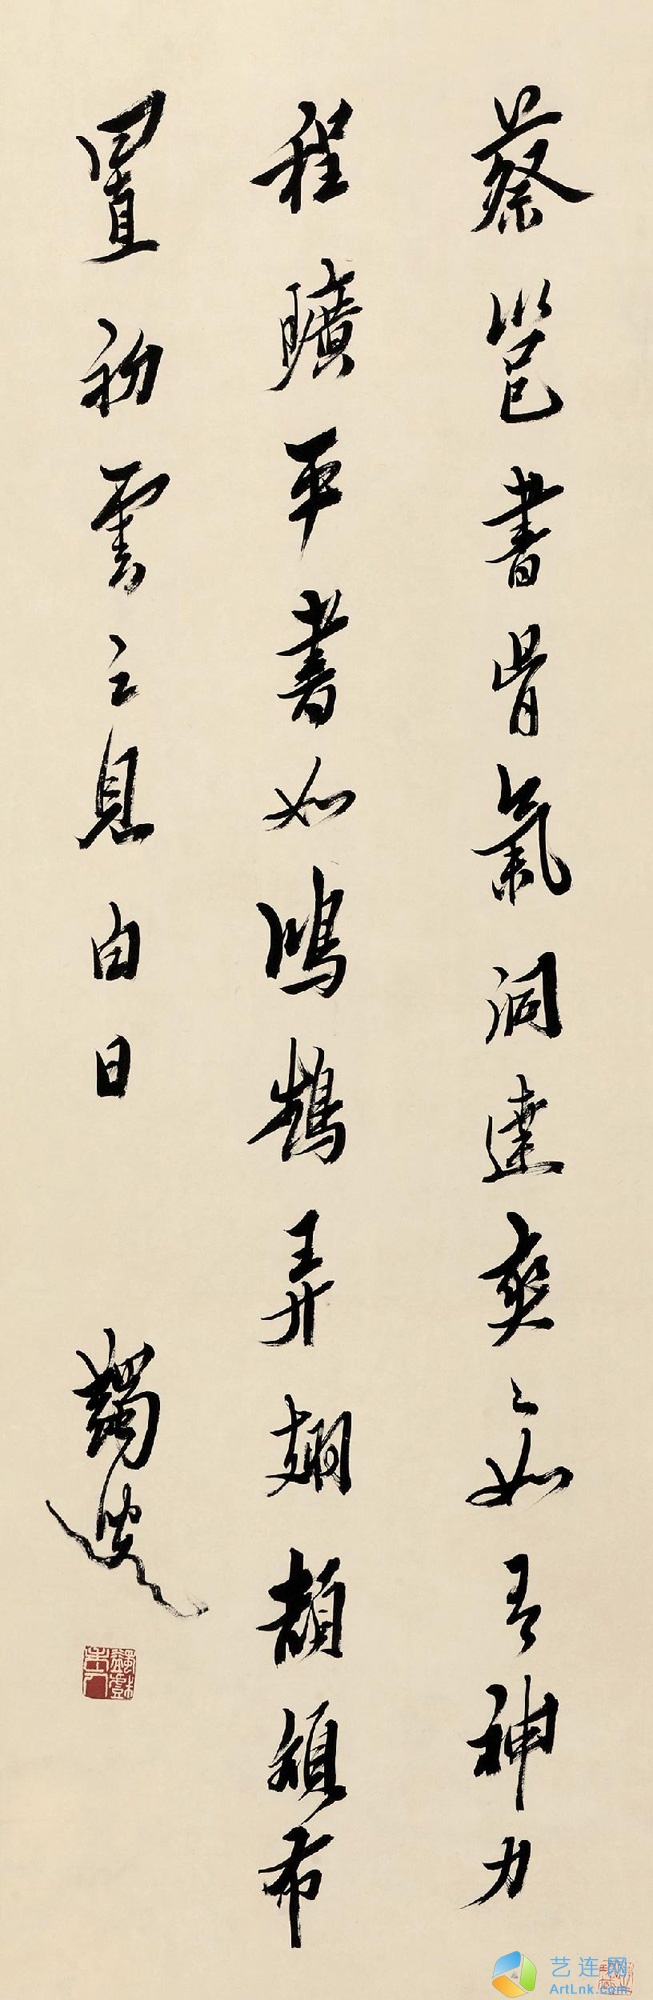 蔡邕書骨氣洞達爽〻如有神力
程曠平書如鴻鵠弄翅頡頏布
置初雲之見白日
蠲叟
蠲戲老人
艺连网
ArtLnk.com